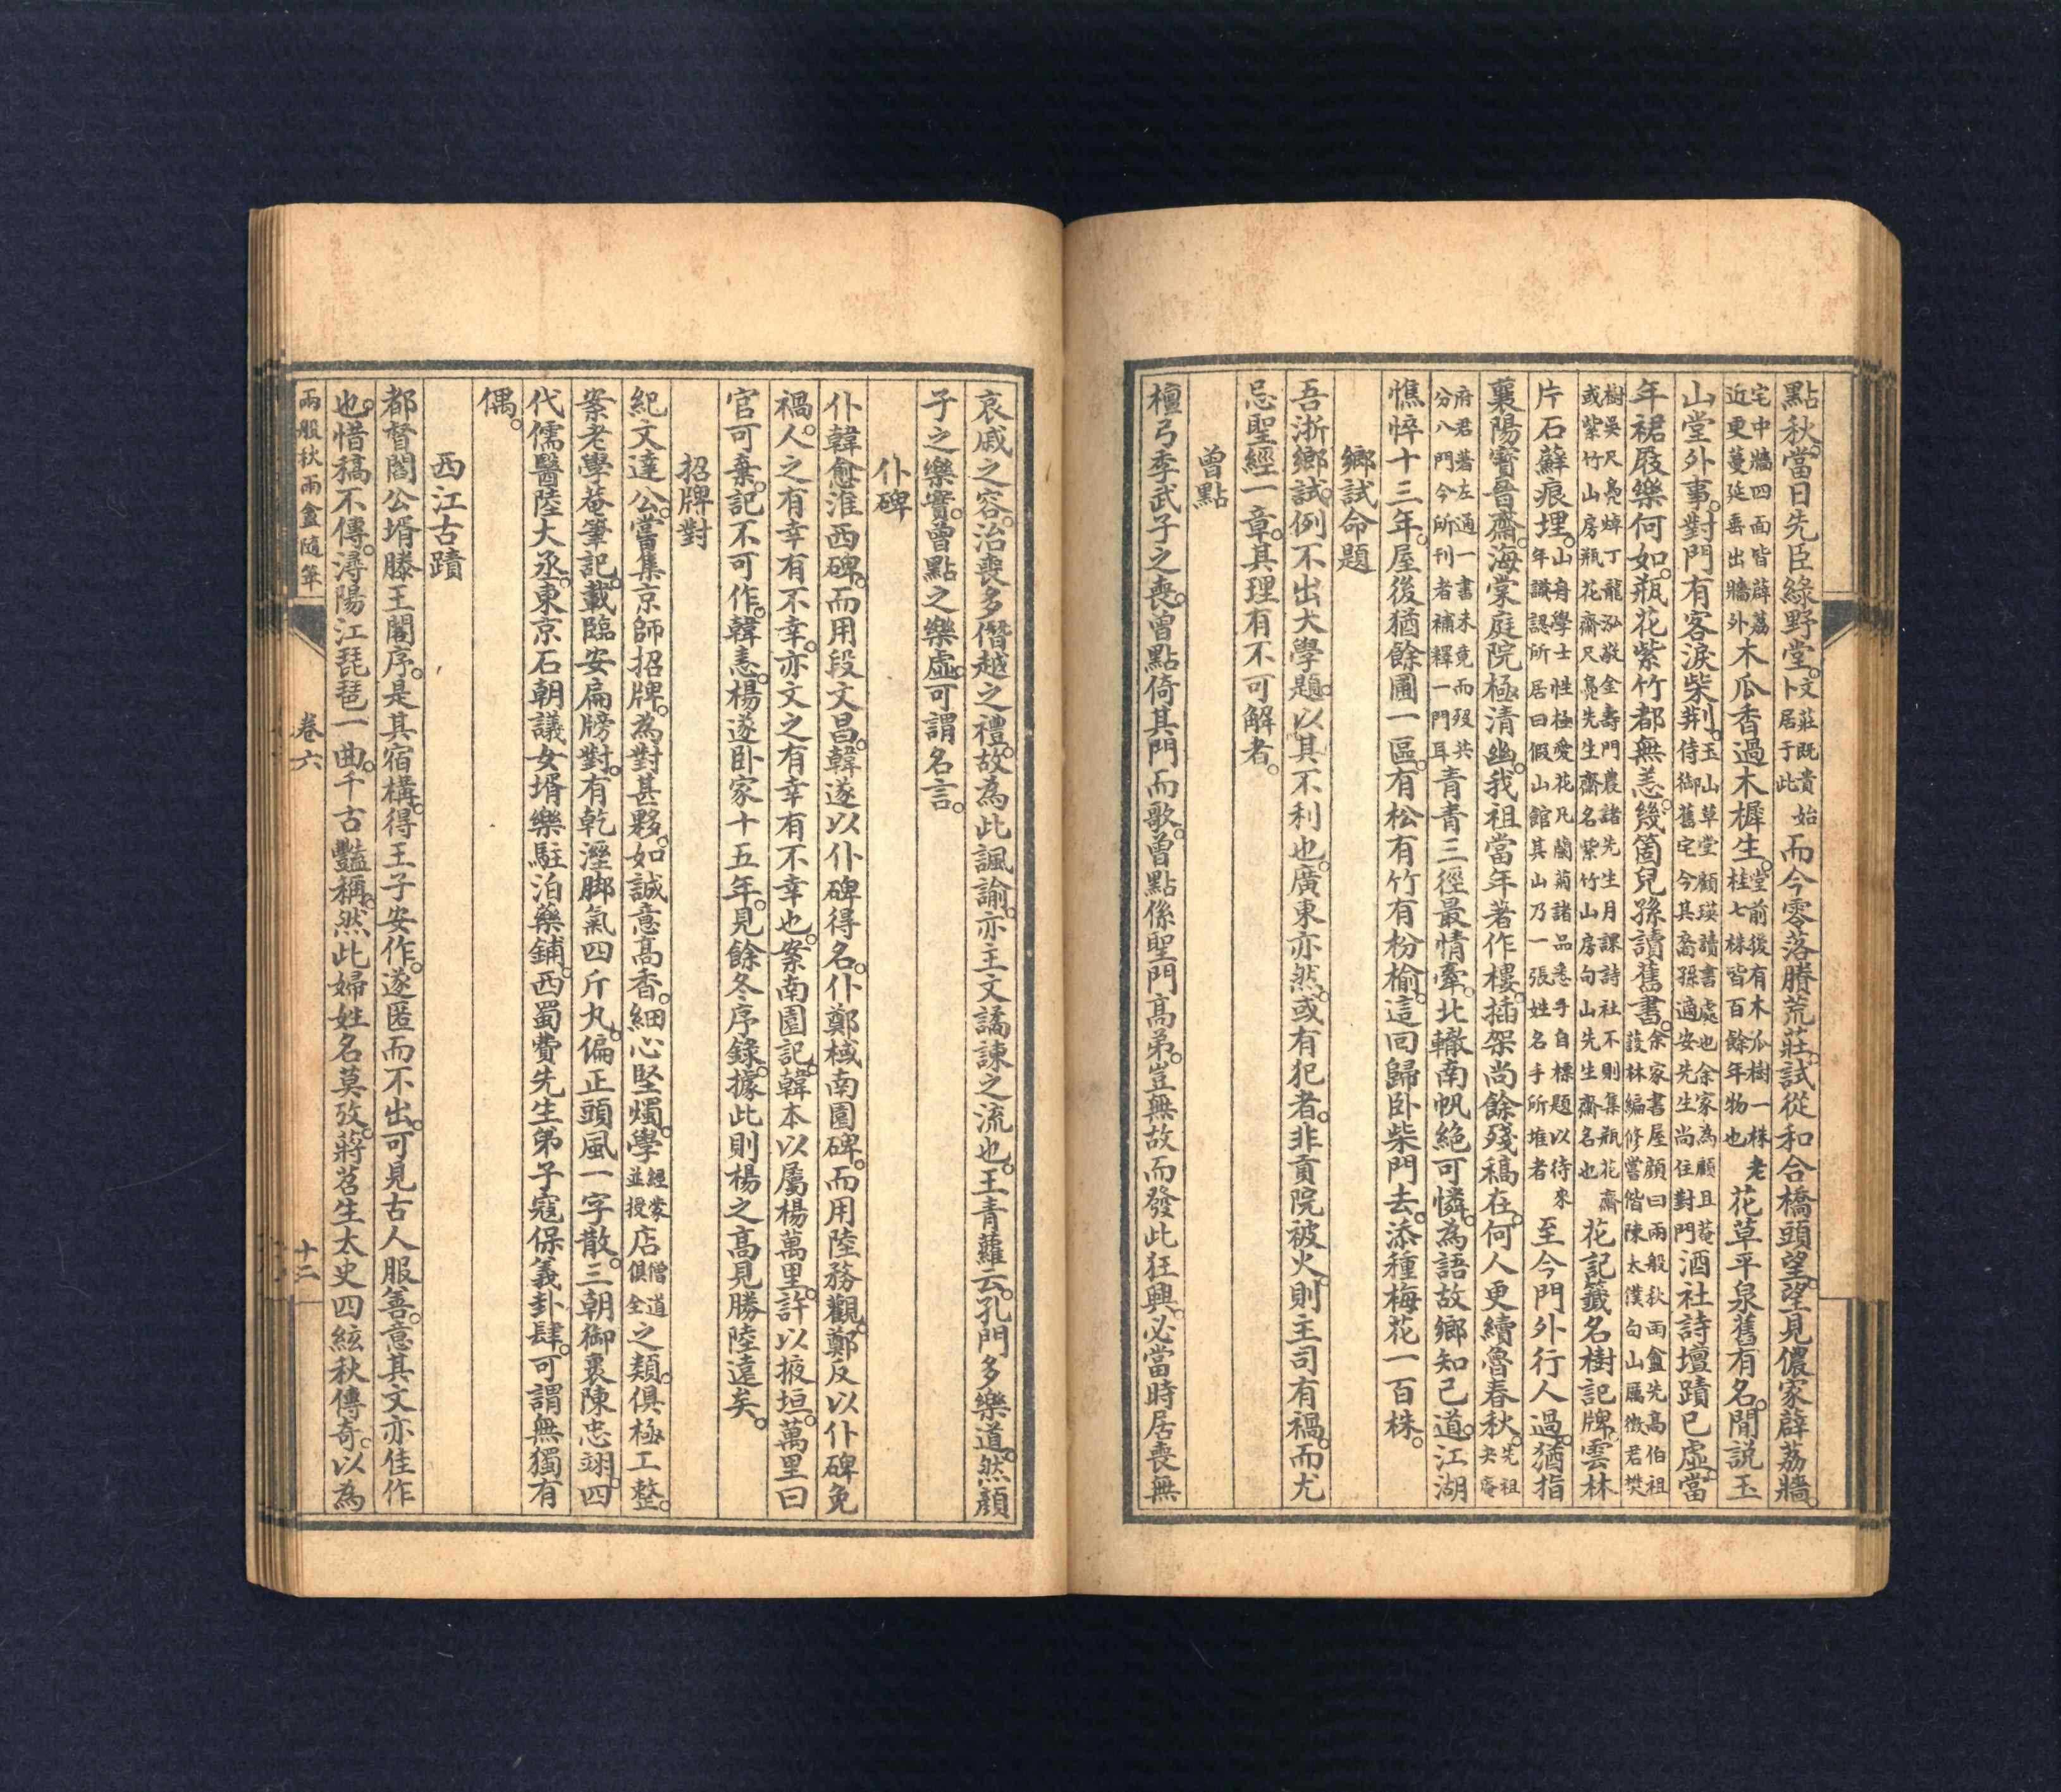 點秋。當日先臣綠野堂。文莊既貴始卜居于此而今零落賸荒莊。試從和合橋頭望。望見儂家薜荔牆。
宅中牆四面皆薜荔近更蔓延垂出牆外木瓜香過木樨生。堂前後有木瓜樹一株老桂七株皆百餘年物也花草平泉舊有名。閒説玉
山堂外事。對門有客淚柴荆。玉山草堂顧瑛讀書處也余家為顧且菴侍御舊宅今其裔孫適安先生尚住對門酒社詩壇蹟已虛。當
年裙屐樂何如。瓶花紫竹都無恙。幾箇兒孫讀舊書。余家書屋顏曰兩般秋雨盦先高伯祖設林編修嘗偕陳太僕句山厲徵君樊
樹吳尺鳧焯丁龍泓敬金壽門農諸先生月課詩社不則集瓶花齋或紫竹山房瓶花齋尺鳧先生齋名紫竹山房句山先生齋名也花記籤名樹記牌。雲林
片石蘚痕埋。山舟學士性極愛花凡蘭菊諸品悉手自標題以待來年識認所居曰假山館其山乃一張姓名手所堆者至今門外行人過。猶指
襄陽寶晉齋。海棠庭院極清幽。我祖當年著作樓。插架尚餘殘稿在。何人更續魯春秋。先祖夬庵
府君著左通一書未竟而歿共分八門今所刊者補釋一門耳青青三徑最情牽。北轍南帆絶可憐。為語故鄉知己道。江湖
憔悴十三年。屋後猶餘圃一區。有松有竹有枌榆。這回歸卧柴門去。添種梅花一百株。
鄉試命題
吾浙鄉試。例不出大學題。以其不利也。廣東亦然。或有犯者。非貢院被火。則主司有禍。而尤
忌聖經一章。其理有不可解者。
曾點
檀弓季武子之喪。曾點倚其門而歌。曾點係聖門高弟。豈無故而發此狂興。必當時居喪無
哀戚之容。治喪多僭越之禮。故為此諷諭。亦主文譎諫之流也。王青蘿云。孔門多樂道。然顏
子之樂實。曾點之樂虛。可謂名言。
仆碑
仆韓愈淮西碑。而用段文昌。韓遂以仆碑得名。仆鄭棫南園碑。而用陸務觀。鄭反以仆碑免
禍。人之有幸有不幸。亦文之有幸有不幸也。案南園記。韓本以屬楊萬里。許以掖垣。萬里曰
官可棄。記不可作。韓恚。楊遂卧家十五年。見餘冬序錄。據此則楊之高見勝陸遠矣。
招牌對
紀文達公。嘗集京師招牌。為對甚夥。如誠意高香。細心堅燭。學經蒙並授店僧道俱全之類。俱極工整。
案老學菴筆記。載臨安扁牓對。有乾溼脚氣四斤丸。偏正頭風一字散。三朝御裹陳忠翊。四
代儒醫陸大丞。東京石朝議女壻樂駐泊藥鋪。西蜀費先生弟子寇保義卦肆。可謂無獨有
偶。
西江古蹟
都督閻公壻滕王閣序。是其宿構。得王子安作。遂匿而不出。可見古人服善。意其文亦佳作
也。惜稿不傳。潯陽江琵琶一曲。千古豔稱。然此婦姓名莫攷。蔣苕生太史四絃秋傳奇。以為
兩般秋雨盦隨筆
卷六
十二